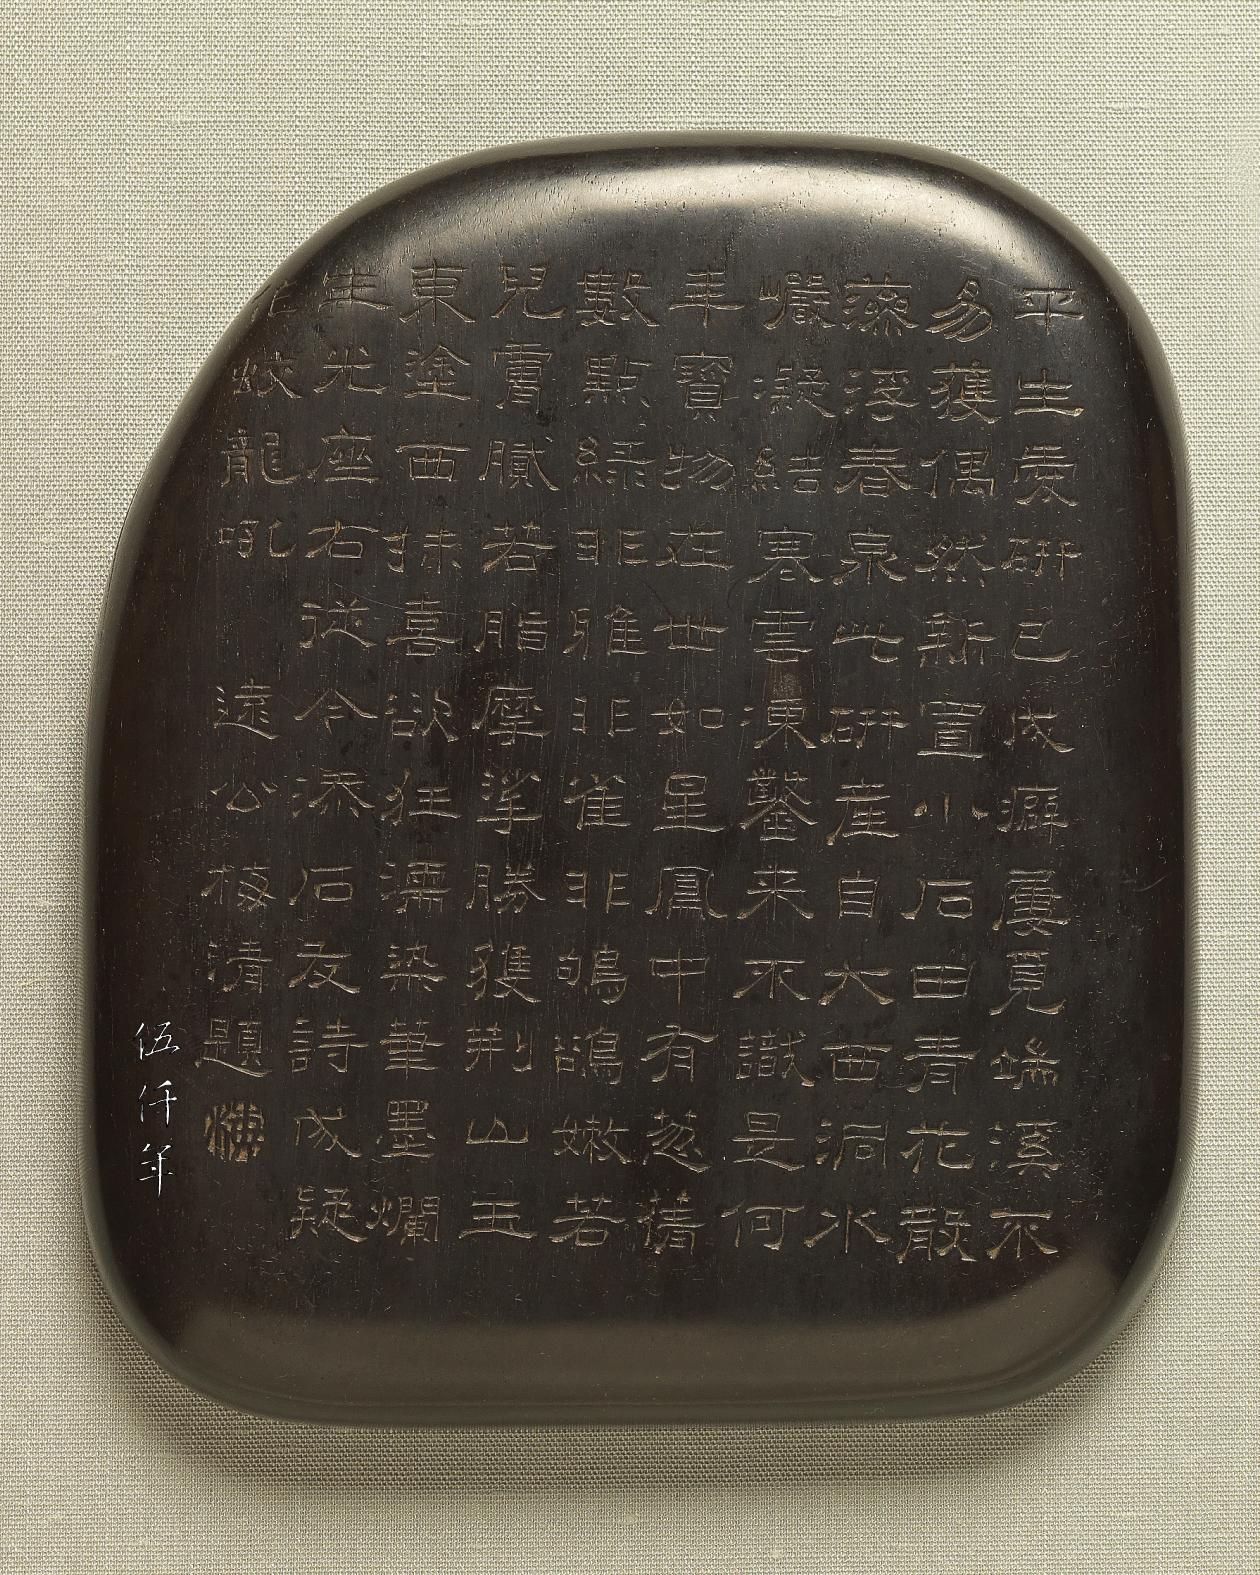 平生愛研已成癖屢覓端溪不
易獲偶然新置小石田青花散
藻浮春泉此研產自大西洞水
巖凝結寒雲凍鑿来不識是何
年寶物在世如星鳳中有葱蒨
數點綠非雅非雀非鴝鵒嫩若
兒膚膩若脂摩挲勝獲荊山玉
東塗西抹喜欲狂濡染筆墨爛
生光座右從今添石友詩成疑
作蛟龍吼 遠公梅清題
伍仟年